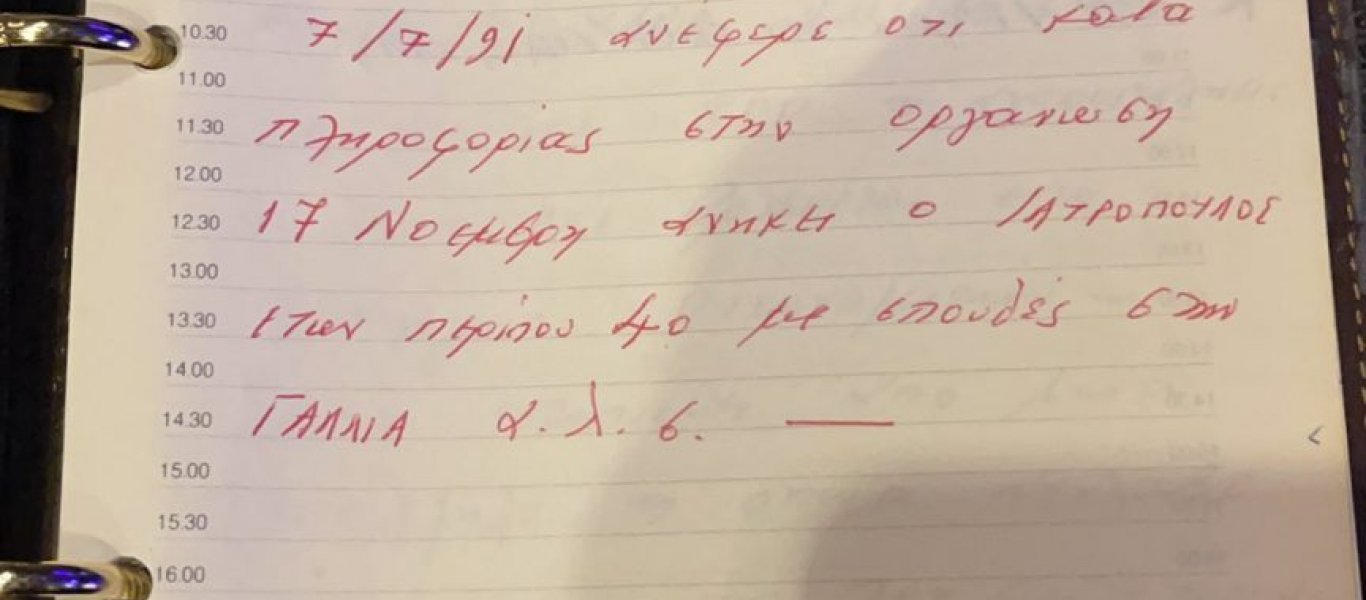 10.30 7/7/91 ανεφερε οτι κατα
11.00
11.30 πληροφοριας στην οργανωση
12.00
12.30 17 Νοεμβρη ανηκει ο ΙΑΤΡΟΠΟΥΛΟΣ
13.00
13.30 ετων περίπου 40 με σπουδές στην
14.00
14.30 ΓΑΛΛΙΑ α.λ.σ. —
15.00
15.30
16.00